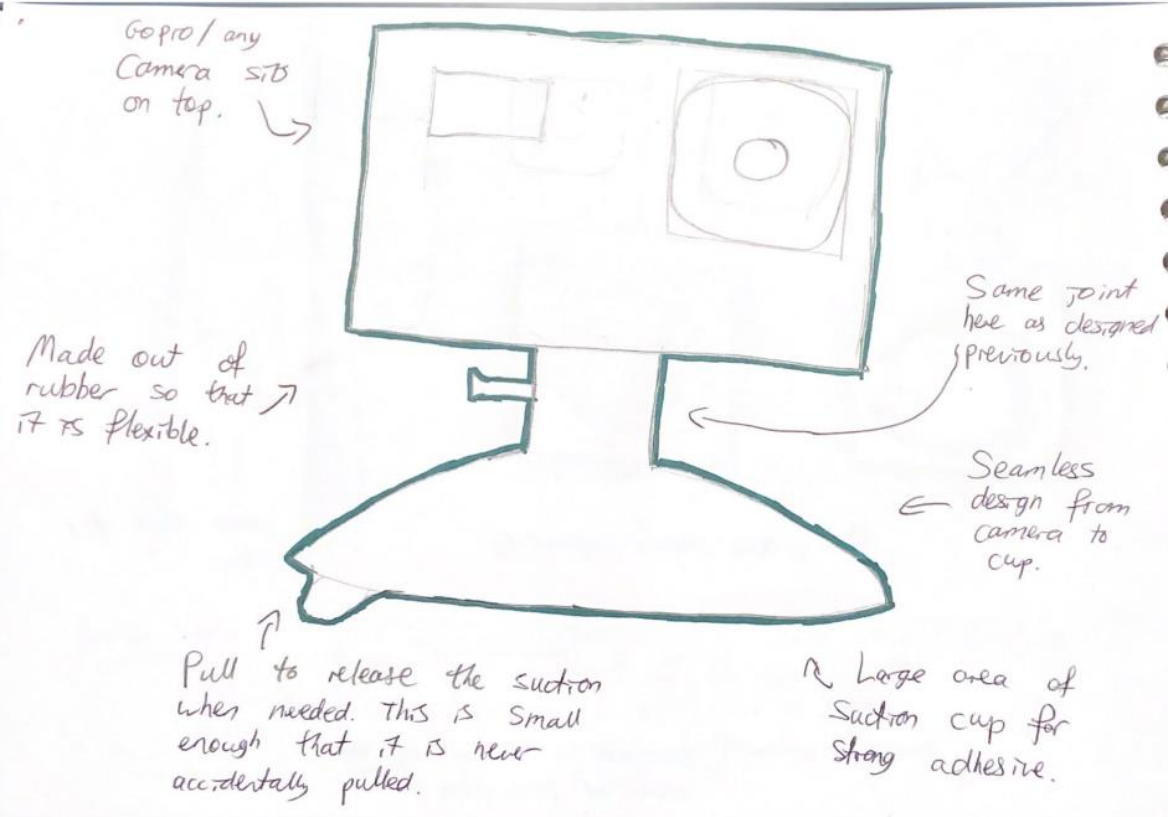 Gopro / any
Camera sits
on top.
Made out of
rubber so that
it is flexible.
Same joint
here as designed
previously.
Seamless
design from
camera to
cup.
Pull to release the suction
when needed. This is small
enough that it is never
accidentally pulled.
Large area of
suction cup for
strong adhesive.